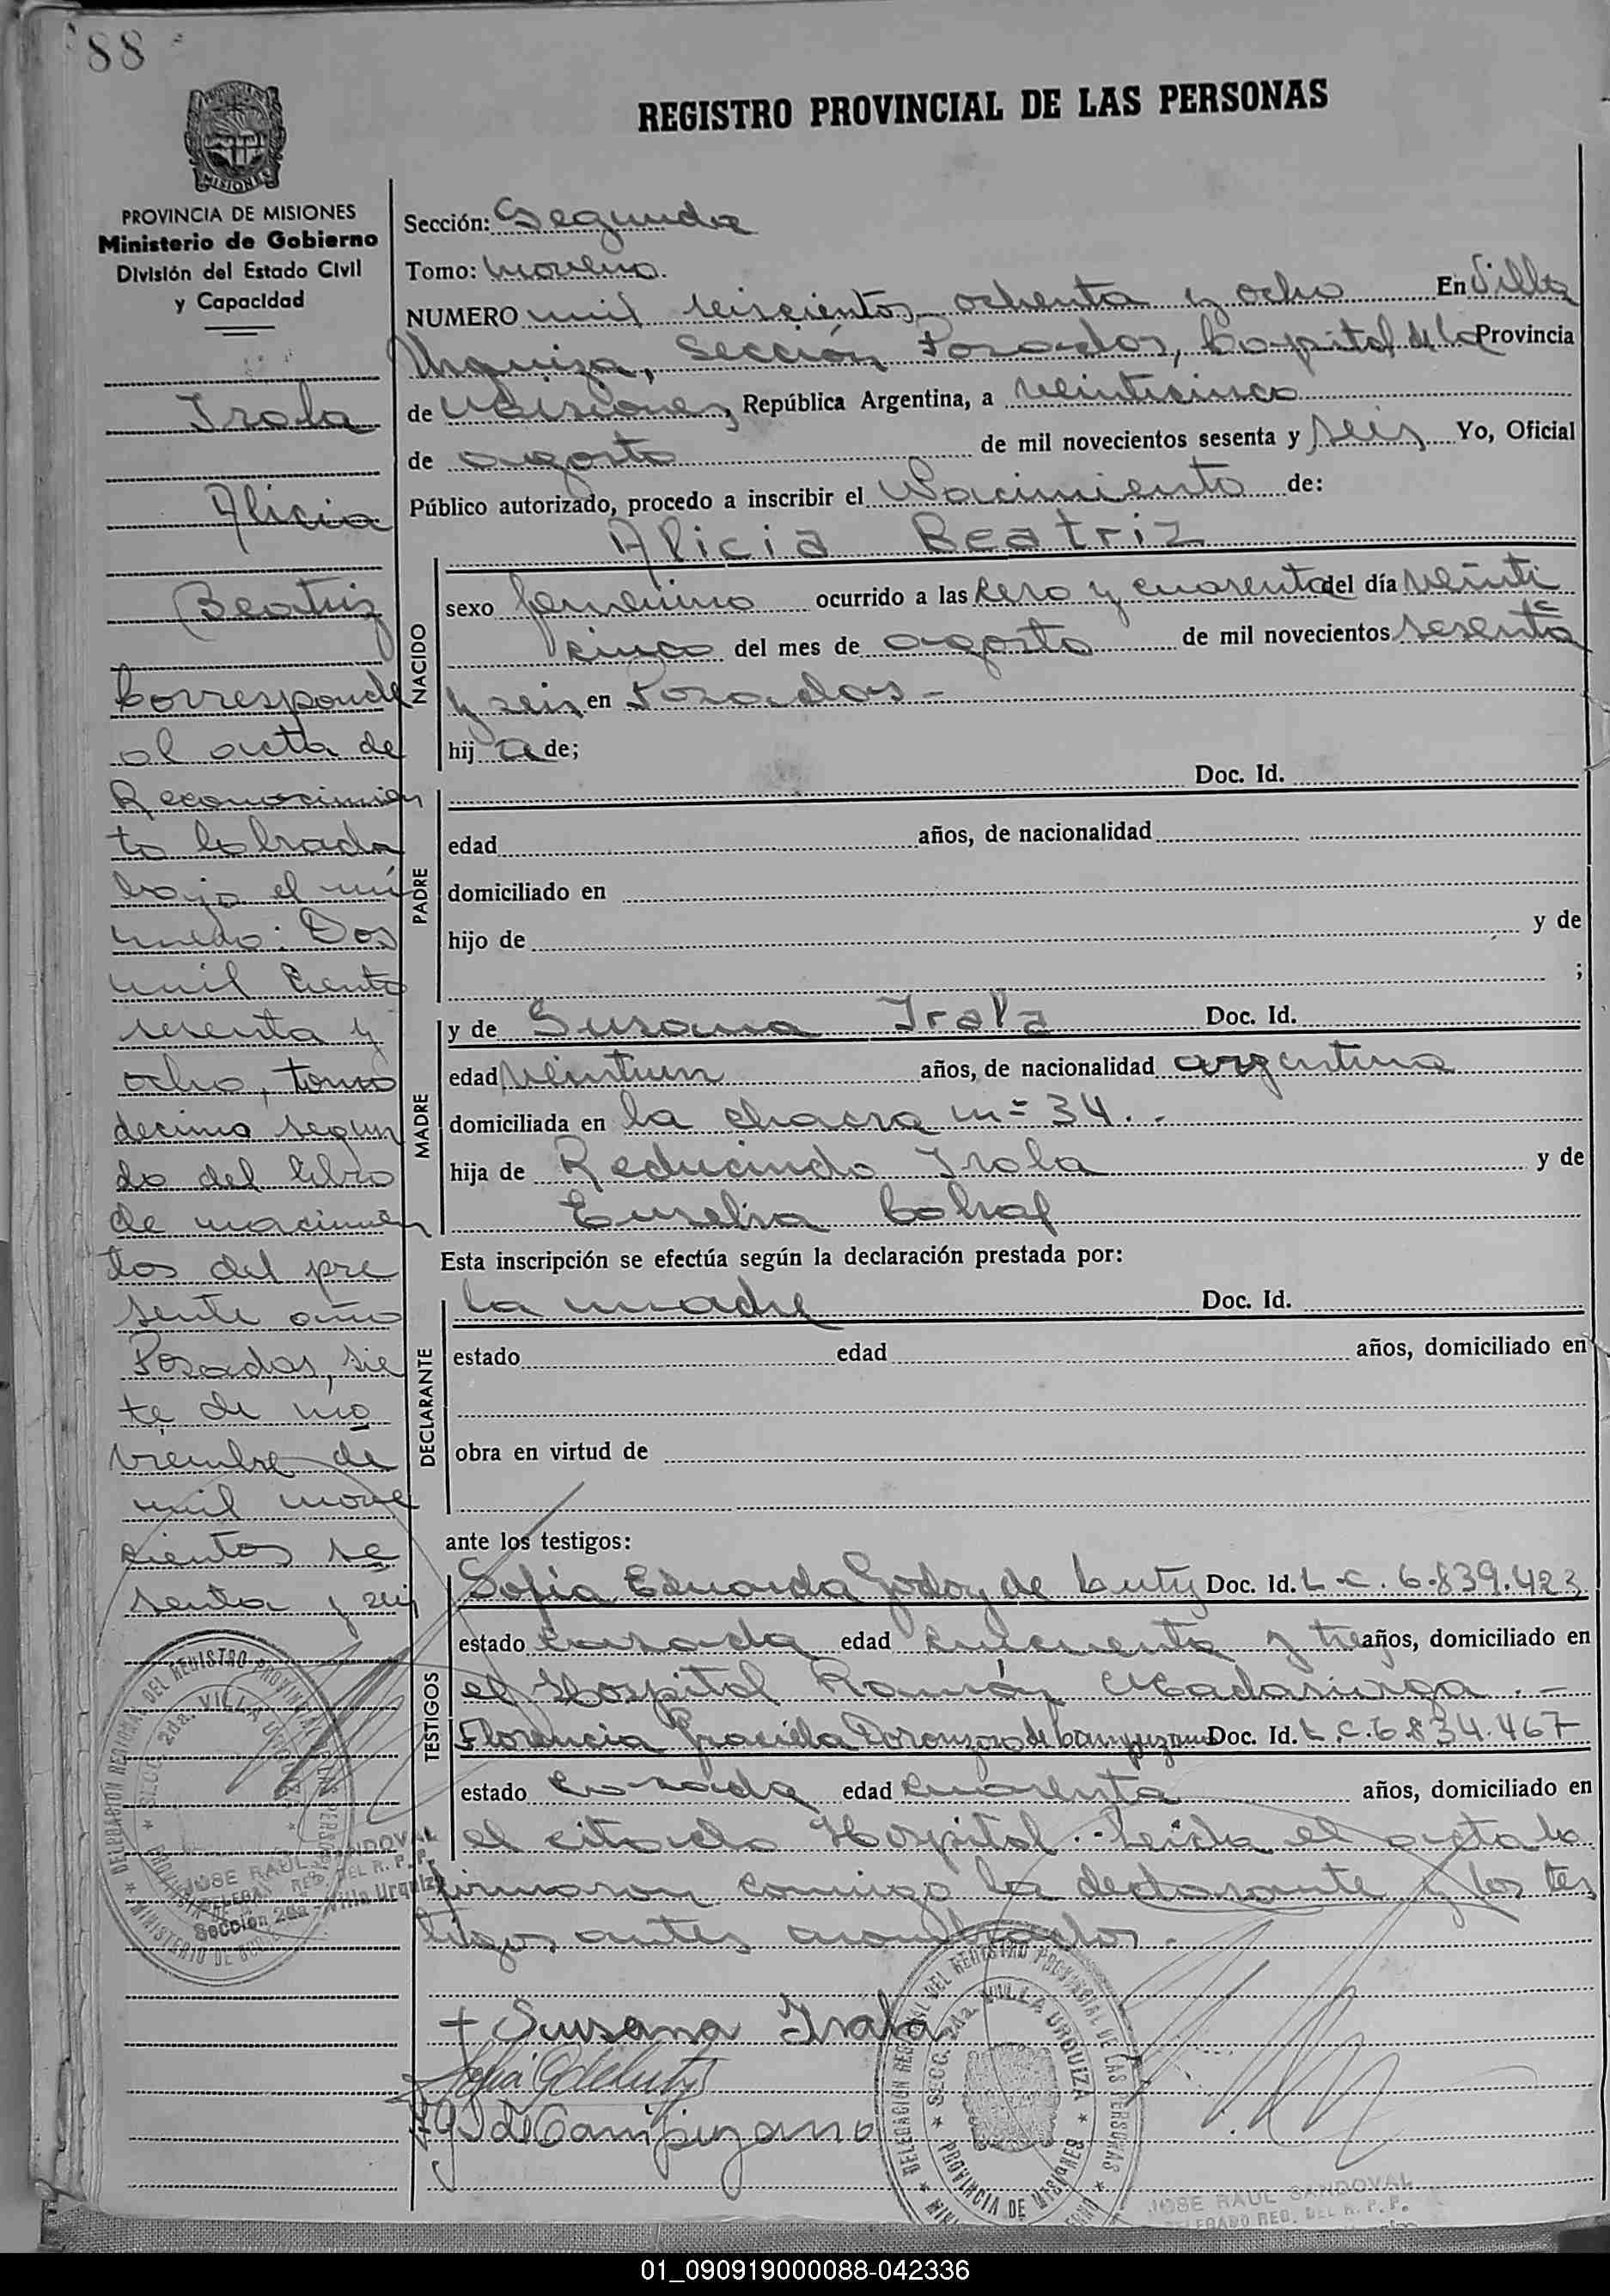 88
REGISTRO PROVINCIAL DE LAS PERSONAS
MISIONES
PROVINCIA DE MISIONES
Ministerio de Gobierno
División del Estado Civil
y Capacidad
Irala
Alicia
Beatriz
Corresponde
al acta de
Reconocimien
to labrada
bajo el nú
mero: Dos
mil ciento
sesenta y
ocho, tomo
decimo segun
do del libro
de nacimien
tos del pre
sente año
Posadas, sie
te de no
viembre de
mil nove
cientos se
senta y seis
Sección: Segunda
Tomo: Noveno.
NUMERO mil seiscientos ochenta y ocho En Villa
Urquiza, Sección Posadas, Capital de la Provincia
de Misiones, República Argentina, a veinticinco
de agosto de mil novecientos sesenta y seis Yo, Oficial
Público autorizado, procedo a inscribir el Nacimiento de:
Alicia Beatriz
NACIDO
sexo femenino ocurrido a las cero y cuarenta del día veinti
cinco del mes de agosto de mil novecientos sesenta
y seis en Posadas -
hij a de;
Doc. Id.
PADRE
edad años, de nacionalidad
domiciliado en
hijo de y de
;
MADRE
y de Susana Irala Doc. Id.
edad veintiun años, de nacionalidad argentina
domiciliada en la chacra nº 34. -
hija de Reducindo Irala y de
Cabral
Esta inscripción se efectúa según la declaración prestada por:
DECLARANTE
la madre Doc. Id.
estado edad años, domiciliado en
obra en virtud de
ante los testigos:
TESTIGOS
Sofía Eduarda Godoy de Doc. Id. L.C. 6.839.423
estado casada edad cincuenta y tres años, domiciliado en
el Hospital Ramón Madariaga. -
Florencia Graciela de Doc. Id. L.C. 6834.467
estado casada edad cuarenta años, domiciliado en
el citado Hospital. - Leida el acta la
firmaron conmigo la declarante y los tes
tigos antes nombrados. -
+ Susana Irala
de Campuzano
DELEGACION REGIONAL DEL REGISTRO PROVINCIAL DE LAS PERSONAS
SECC. 2da. VILLA URQUIZA
PROVINCIA DE MISIONES
MINISTERIO DE
JOSE RAUL SANDOVAL
DELEGADO REG. DEL R. P. P.
Sección 2da - Villa Urquiza
DELEGACION REGIONAL DEL REGISTRO PROVINCIAL DE LAS PERSONAS
SECC. 2da. VILLA URQUIZA
PROVINCIA DE MISIONES
JOSE RAUL SANDOVAL
DELEGADO REG. DEL R. P. P.
01_090919000088-042336